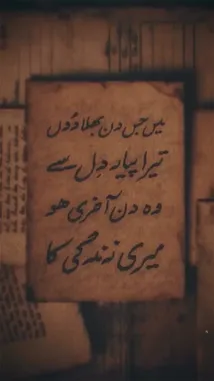 میں جس دن بھلا دوں
تیرا پیار دل سے
وہ دن آخری ہو
میری زندگی کا